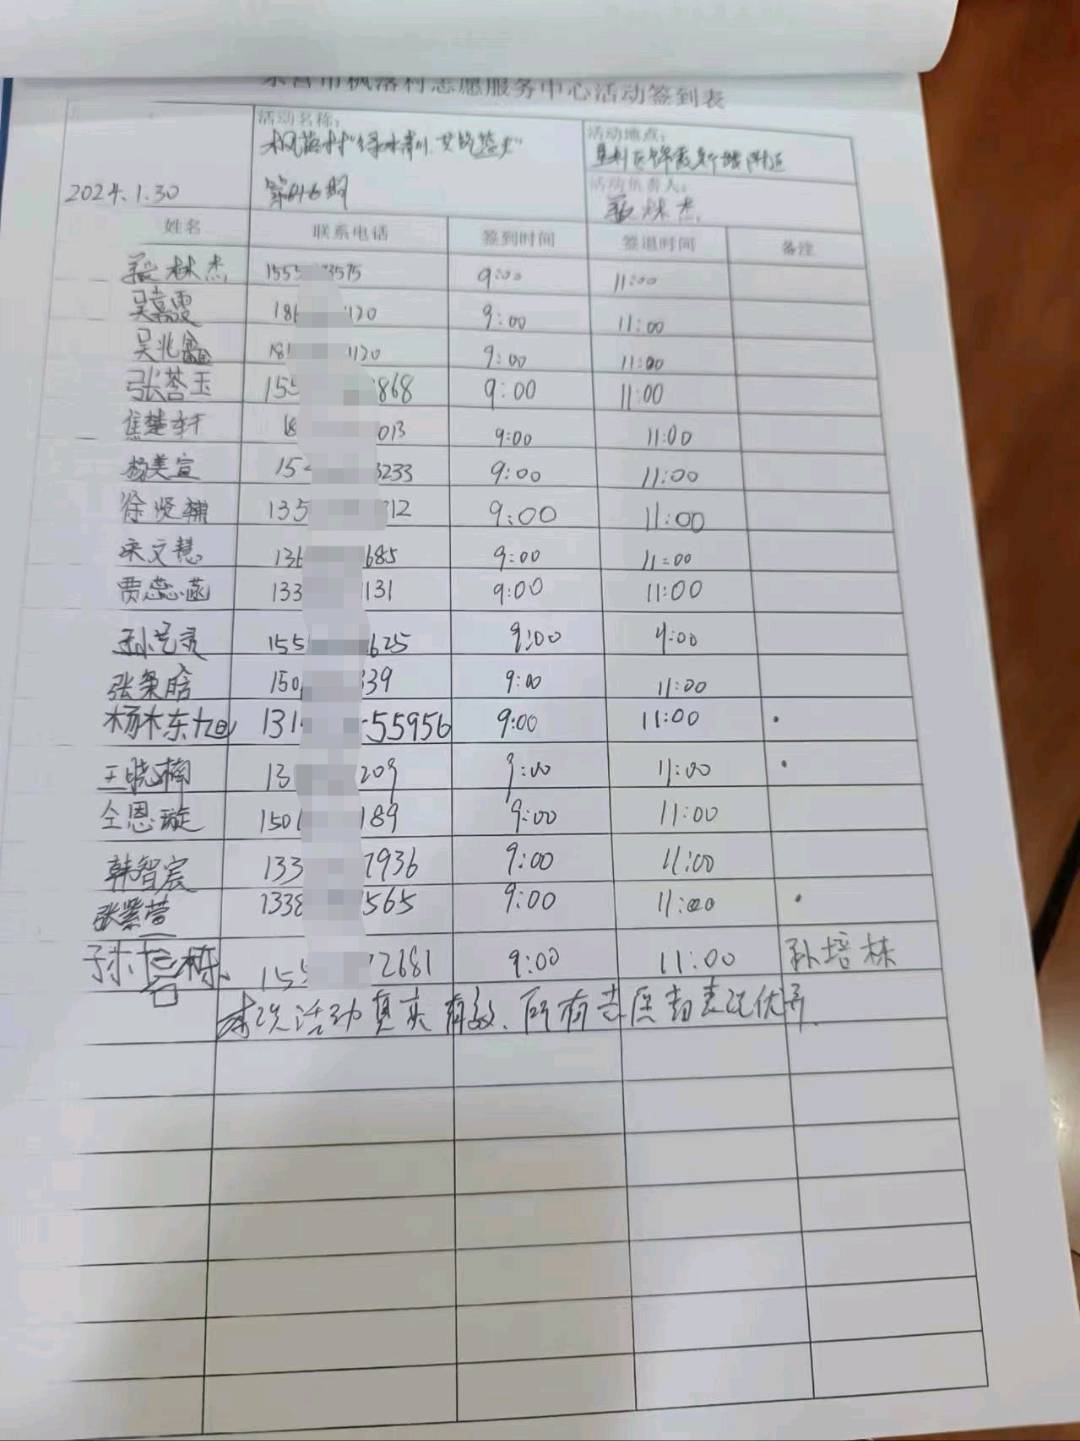 东营市枫落村志愿服务中心活动签到表
活动名称：
活动地点：
枫落村"绿水 
垦利区 附近
2024.1.30
第 期
活动负责人：
林杰
姓名 联系电话 签到时间 签退时间 备注
林杰 155 3575 9:00 11:00
吴嘉雯 18 1120 9:00 11:00
吴兆鑫 181 1120 9:00 11:00
张荅玉 155 868 9:00 11:00
焦楚轩 18 013 9:00 11:00
杨美宣 15 3233 9:00 11:00
徐贤辅 135 712 9:00 11:00
宋文慧 136 685 9:00 11:00
贾蕊菡 133 1131 9:00 11:00
孙艺灵 155 625 9:00 11:00
张 晗 150 339 9:00 11:00
杨东旭 131 55956 9:00 11:00
王晓楠 13 209 9:00 11:00
仝恩璇 150 189 9:00 11:00
韩智宸 133 7936 9:00 11:00
张紫萱 1338 565 9:00 11:00
孙培栋 155 2681 9:00 11:00 孙培栋
本次活动真实有效、所有志愿者表现优异